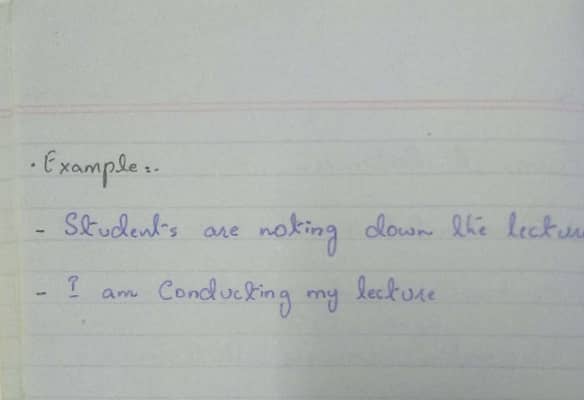 · Example :-
- Students are noting down the lectu
- I am Conducting my lecture